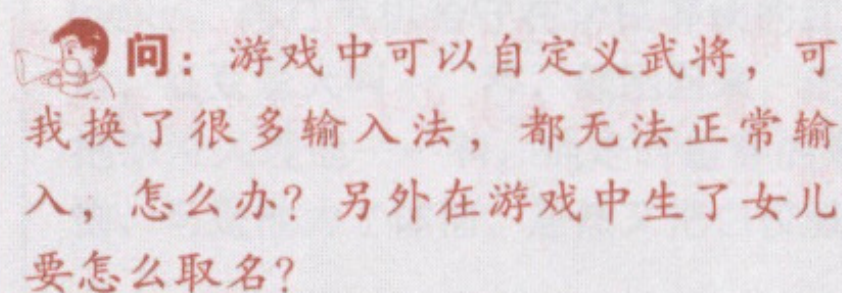 问：游戏中可以自定义武将，可
我换了很多输入法，都无法正常输
入，怎么办？另外在游戏中生了女儿
要怎么取名？